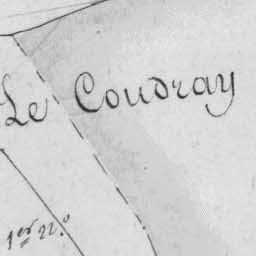 Le Coudray
1er 22.o